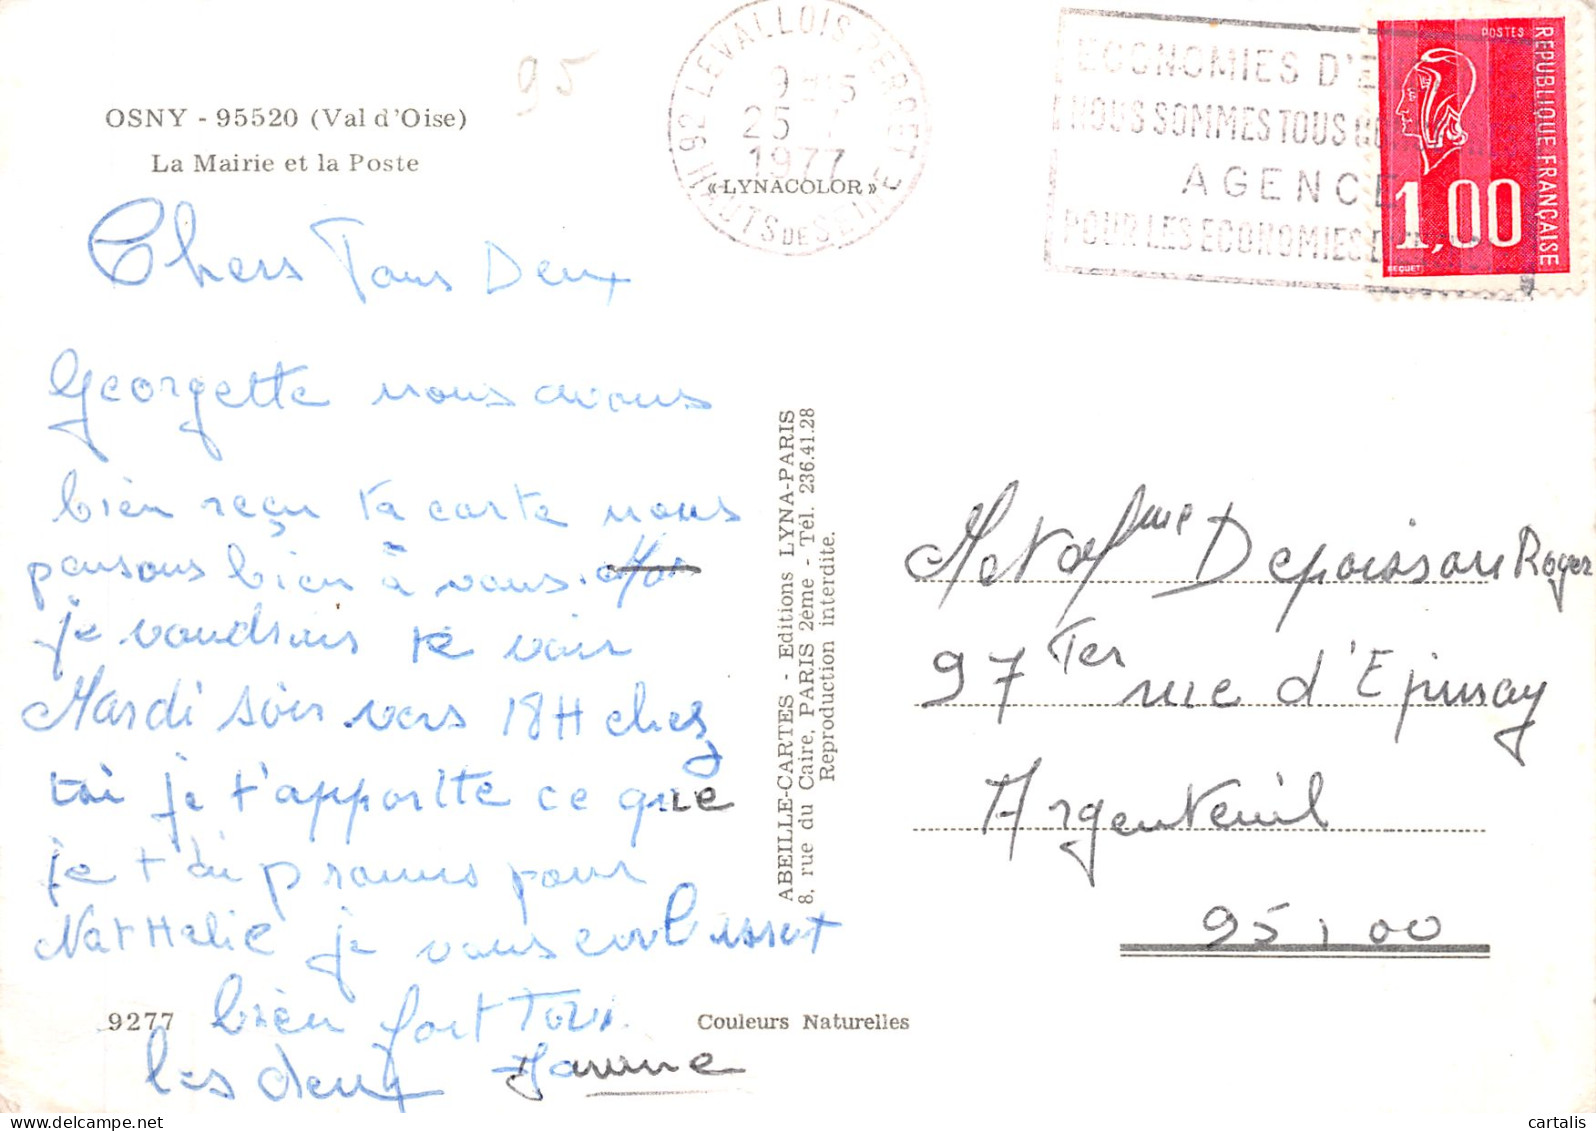 95
OSNY - 95520 (Val d'Oise)
La Mairie et la Poste
92 LEVALLOIS PERRET
25
1977
HAUTS DE SEINE
«LYNACOLOR»
ECONOMIES D'E
NOUS SOMMES TOUS
AGENCE
POUR LES ECONOMIES D
POSTES
REPUBLIQUE FRANÇAISE
1,00
BEQUET
Chers Tous Deux
Georgette nous avons
bien reçu ta carte nous
pensons bien à vous.
je voudrais te voir
Mardi soir vers 18H chez
toi je t'apporte ce que
je t'ai promis pour
NatHalie je vous embrasse
bien fort Tous
les deux Janine
ABEILLE-CARTES - Editions LYNA-PARIS
8, rue du Caire, PARIS 2ème - Tél. 236.41.28
Reproduction interdite.
Mr et Mme Depoisson Roger
97 Ter rue d'Epinay
Argenteuil
95100
9277
Couleurs Naturelles
cartalis